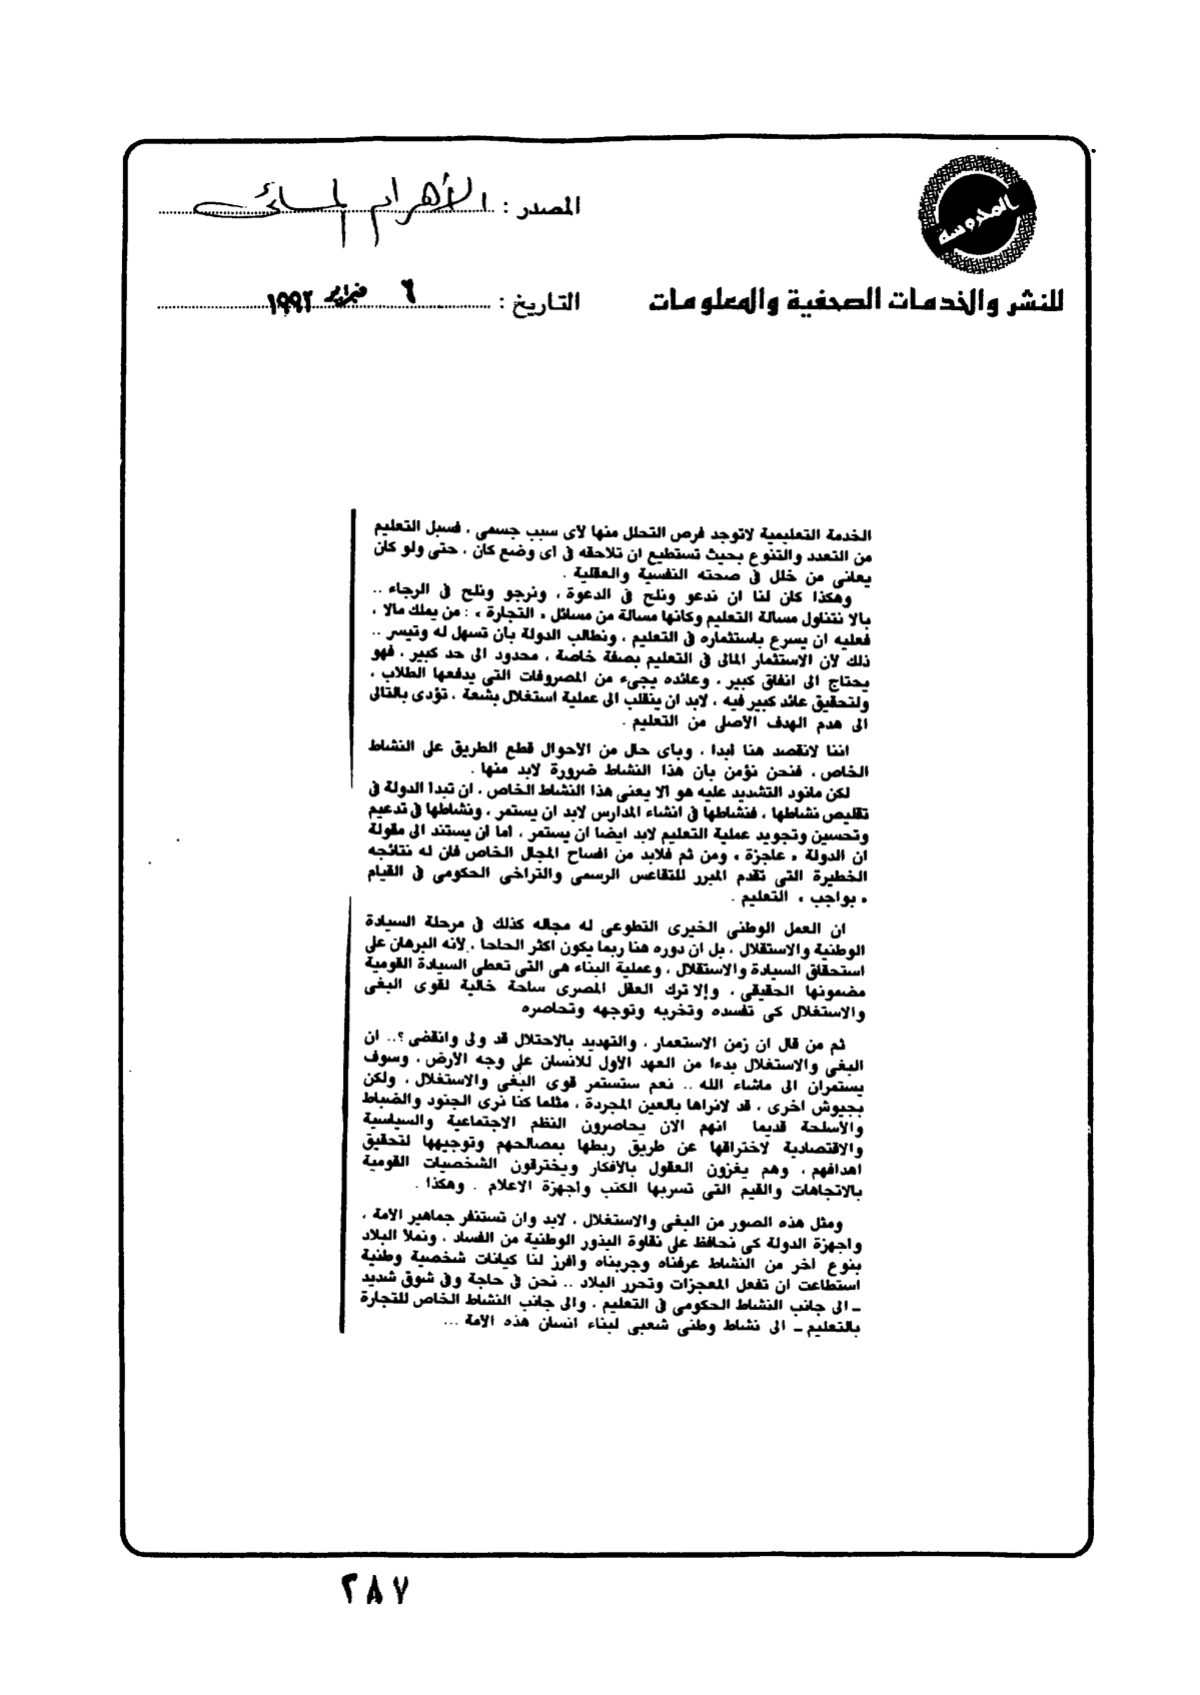 المحروسة
المصدر : الأهرام المسائى
للنشر والخدمات الصحفية والمعلومات
التاريخ : ٦ فبراير ١٩٩٢
الخدمة التعليمية لاتوجد فرص التحلل منها لاى سبب جسمى ، فسبل التعليم
من التعدد والتنوع بحيث تستطيع ان تلاحقه فى اى وضع كان ، حتى ولو كان
يعانى من خلل فى صحته النفسية والعقلية .
وهكذا كان لنا ان ندعو ونلح فى الدعوة ، ونرجو ونلح فى الرجاء ..
بالا نتناول مسالة التعليم وكانها مسالة من مسائل « التجارة » : من يملك مالا ،
فعليه ان يسرع باستثماره فى التعليم ، ونطالب الدولة بان تسهل له وتيسر ..
ذلك لان الاستثمار المالى فى التعليم بصفة خاصة ، محدود الى حد كبير ، فهو
يحتاج الى انفاق كبير ، وعائده يجىء من المصروفات التى يدفعها الطلاب ،
ولتحقيق عائد كبير فيه ، لابد ان ينقلب الى عملية استغلال بشعة ، تؤدى بالتالى
الى هدم الهدف الاصلى من التعليم .
اننا لانقصد هنا ابدا ، وباى حال من الاحوال قطع الطريق على النشاط
الخاص ، فنحن نؤمن بان هذا النشاط ضرورة لابد منها .
لكن مانود التشديد عليه هو الا يعنى هذا النشاط الخاص ، ان تبدا الدولة فى
تقليص نشاطها ، فنشاطها فى انشاء المدارس لابد ان يستمر ، ونشاطها فى تدعيم
وتحسين وتجويد عملية التعليم لابد ايضا ان يستمر ، اما ان يستند الى مقولة
ان الدولة « عاجزة » ومن ثم فلابد من افساح المجال الخاص فان له نتائجه
الخطيرة التى تقدم المبرر للتقاعس الرسمى والتراخى الحكومى فى القيام
« بواجب » التعليم .
ان العمل الوطنى الخيرى التطوعى له مجاله كذلك فى مرحلة السيادة
الوطنية والاستقلال ، بل ان دوره هنا ربما يكون اكثر الحاحا ، لانه البرهان على
استحقاق السيادة والاستقلال ، وعملية البناء هى التى تعطى السيادة القومية
مضمونها الحقيقى ، والا ترك العقل المصرى ساحة خالية لقوى البغى
والاستغلال كى تفسده وتخربه وتوجهه وتحاصره
ثم من قال ان زمن الاستعمار ، والتهديد بالاحتلال قد ولى وانقضى ؟.. ان
البغى والاستغلال بدءا من العهد الاول للانسان على وجه الارض ، وسوف
يستمران الى ماشاء الله .. نعم ستستمر قوى البغى والاستغلال ، ولكن
بجيوش اخرى ، قد لانراها بالعين المجردة ، مثلما كنا نرى الجنود والضباط
والاسلحة قديما انهم الان يحاصرون النظم الاجتماعية والسياسية
والاقتصادية لاختراقها عن طريق ربطها بمصالحهم وتوجيهها لتحقيق
اهدافهم ، وهم يغزون العقول بالافكار ويخترقون الشخصيات القومية
بالاتجاهات والقيم التى تسربها الكتب واجهزة الاعلام . وهكذا .
ومثل هذه الصور من البغى والاستغلال ، لابد وان تستنفر جماهير الامة ،
واجهزة الدولة كى نحافظ على نقاوة البذور الوطنية من الفساد ، ونملا البلاد
بنوع اخر من النشاط عرفناه وجربناه وافرز لنا كيانات شخصية وطنية
استطاعت ان تفعل المعجزات وتحرر البلاد .. نحن فى حاجة وفى شوق شديد
ـ الى جانب النشاط الحكومى فى التعليم ، والى جانب النشاط الخاص للتجارة
بالتعليم ـ الى نشاط وطنى شعبى لبناء انسان هذه الامة ...
٢٨٧